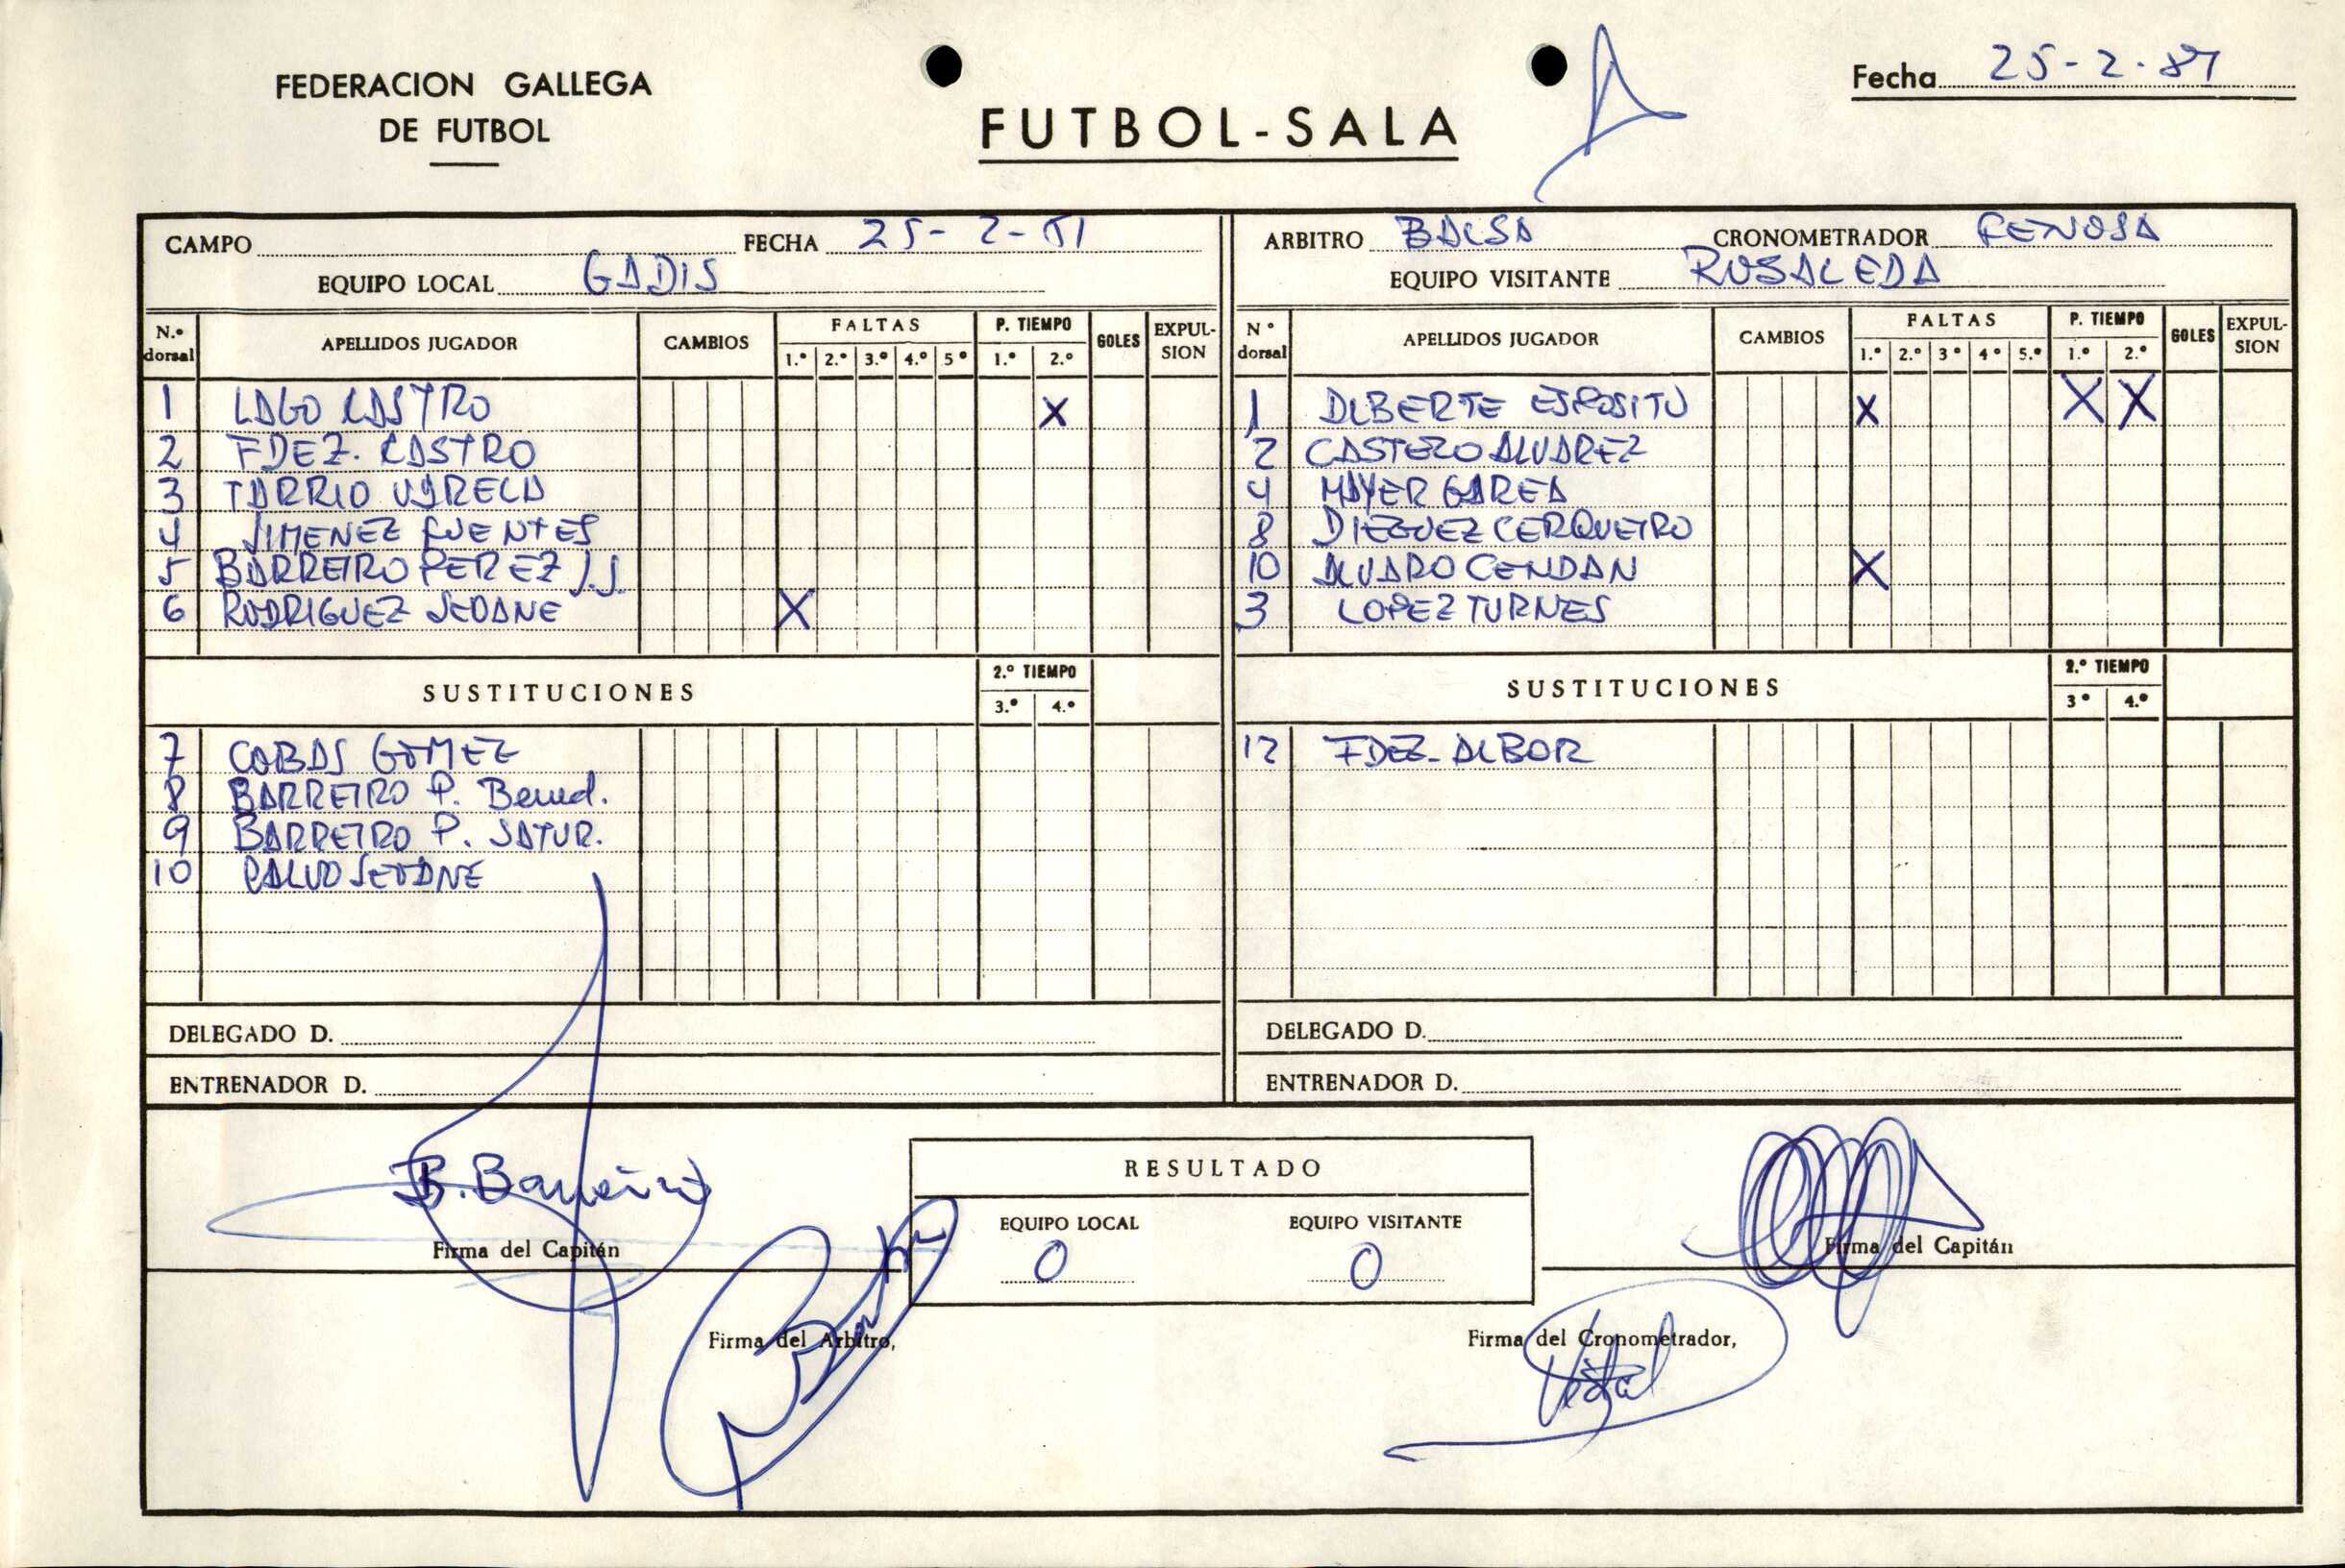 FEDERACION GALLEGA
DE FUTBOL
FUTBOL-SALA
Fecha 25-2-87
CAMPO FECHA 25-2-81
EQUIPO LOCAL GADIS
ARBITRO BALSA CRONOMETRADOR FENOSA
EQUIPO VISITANTE ROSALEDA
N.º dorsal APELLIDOS JUGADOR CAMBIOS FALTAS 1.º 2.º 3.º 4.º 5º P. TIEMPO 1.º 2.º GOLES EXPULSION
1 LAGO CASTRO X
2 FDEZ. CASTRO
3 TARRIO VARELA
4 JIMENEZ FUENTES
5 BARREIRO PEREZ J.J.
6 RODRIGUEZ SEOANE X
SUSTITUCIONES 2.º TIEMPO 3.º 4.º
7 COBAS GOMEZ
8 BARREIRO P. Bernd.
9 BARREIRO P. SATUR.
10 CALVO SEOANE
DELEGADO D.
ENTRENADOR D.
Nº dorsal APELLIDOS JUGADOR CAMBIOS FALTAS 1.º 2.º 3º 4º 5.º P. TIEMPO 1.º 2.º GOLES EXPULSION
1 ALBERTE ESPOSITO X X X
2 CASTRO ALVAREZ
4 MAYER GAREA
8 DIEGUEZ CERQUEIRO
10 ALVARO CENDAN X
3 LOPEZ TURNES
SUSTITUCIONES 2.º TIEMPO 3º 4.º
12 FDEZ. ALBOR
DELEGADO D.
ENTRENADOR D.
B. Barreiro
Firma del Capitán
RESULTADO
EQUIPO LOCAL EQUIPO VISITANTE
0 0
Firma del Capitán
Firma del Arbitro,
Firma del Cronometrador,